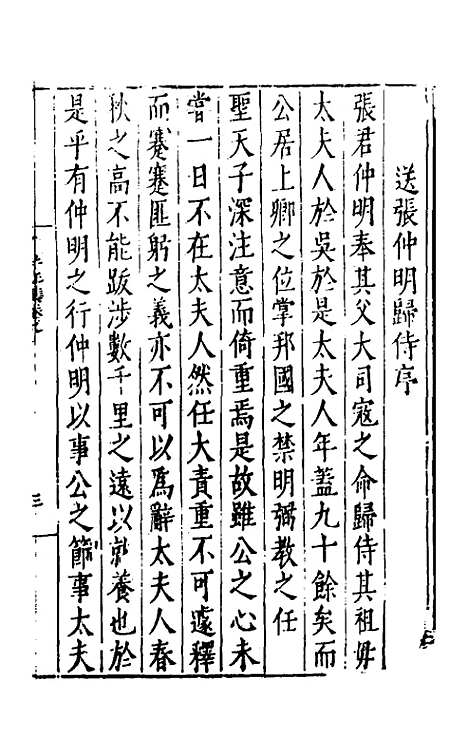 送張仲明歸侍序
張君仲明奉其父大司寇之命歸侍其祖毋
太夫人於吳於是太夫人年蓋九十餘矣而
公居上卿之位掌邦國之禁明弼教之任
聖天子深注意而倚重焉是故雖公之心未
嘗一日不在太夫人然任大責重不可遽釋
而蹇蹇匪躬之義亦不可以爲辭太夫人春
秋之高不能跋涉數千里之遠以就養也於
是乎有仲明之行仲明以事公之節事太夫
三